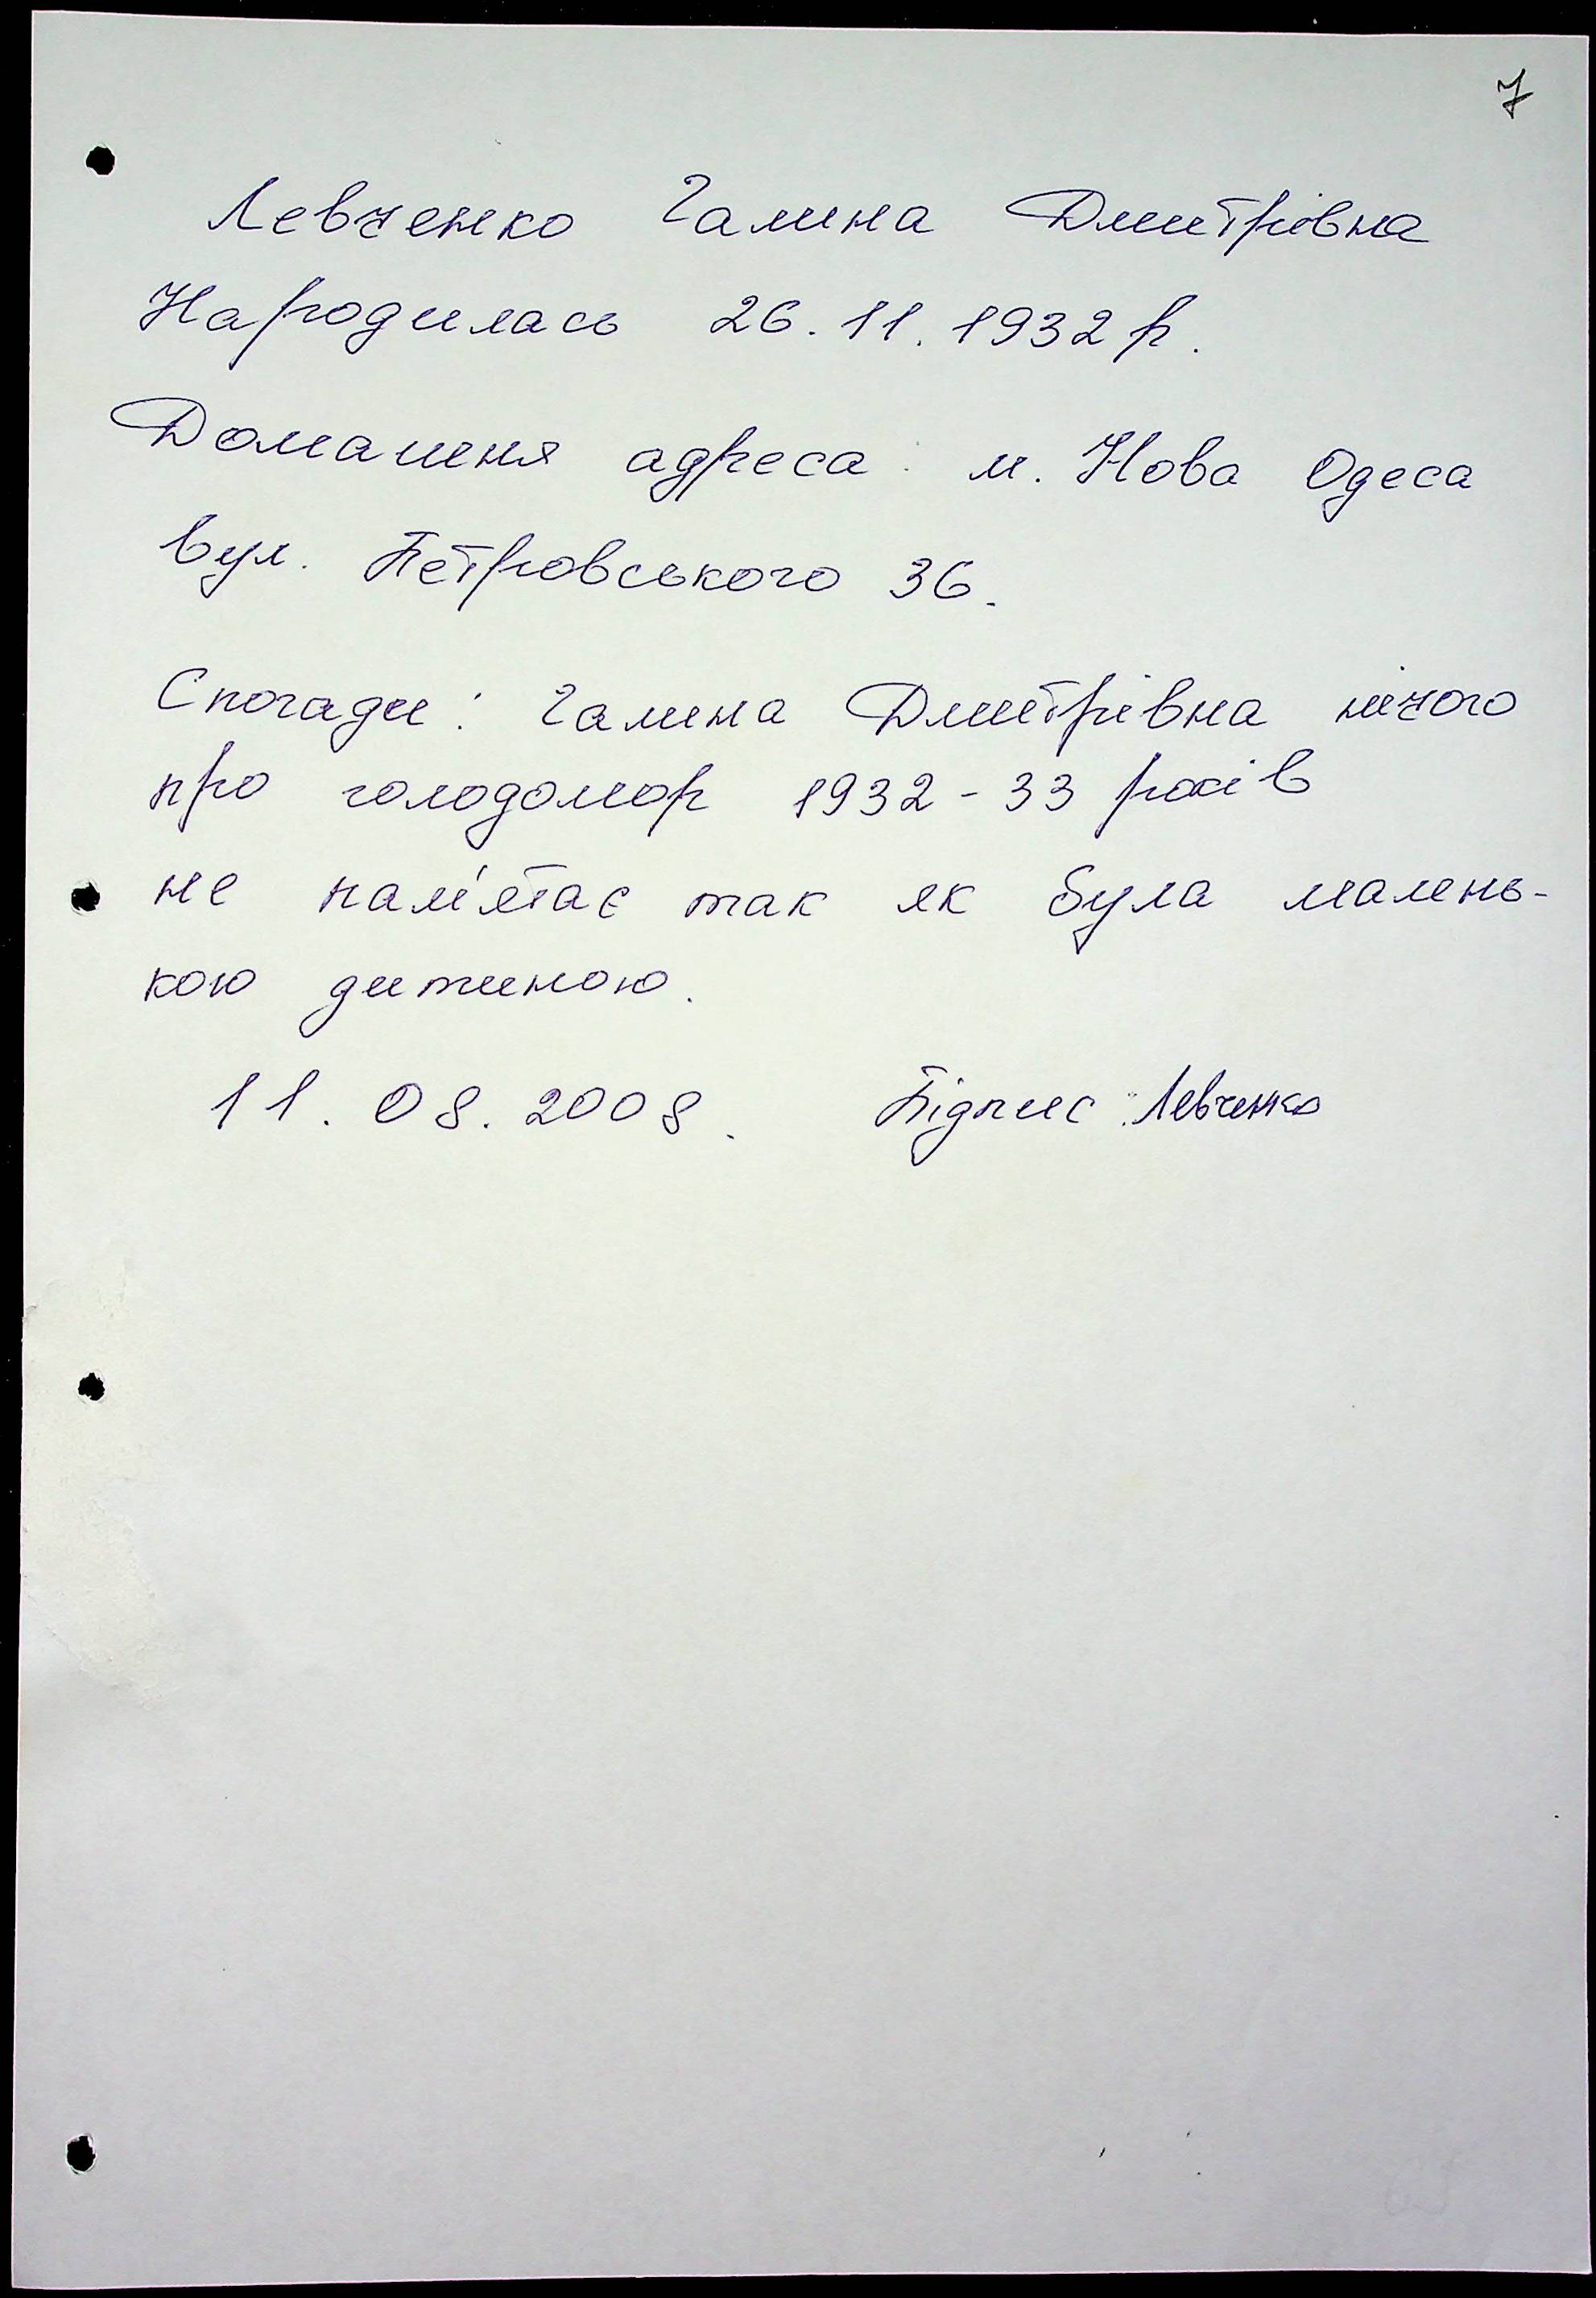 7
Левченко Галина Дмитрівна
Народилась 26.11.1932 р.
Домашня адреса: м. Нова Одеса
вул. Петровського 36.
Спогади: Галина Дмитрівна нічого
про голодомор 1932-33 років
не пам'ятає так як була малень-
кою дитиною.
11.08.2008. Підпис: Левченко